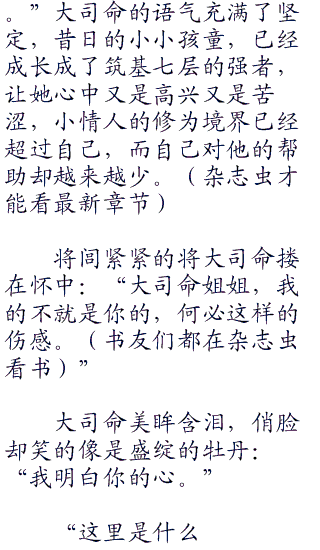 。”大司命的语气充满了坚
定，昔日的小小孩童，已经
成长成了筑基七层的强者，
让她心中又是高兴又是苦
涩，小情人的修为境界已经
超过自己，而自己对他的帮
助却越来越少。（杂志虫才
能看最新章节）
将闾紧紧的将大司命搂
在怀中：“大司命姐姐，我
的不就是你的，何必这样的
伤感。（书友们都在杂志虫
看书）”
大司命美眸含泪，俏脸
却笑的像是盛绽的牡丹：
“我明白你的心。”
“这里是什么